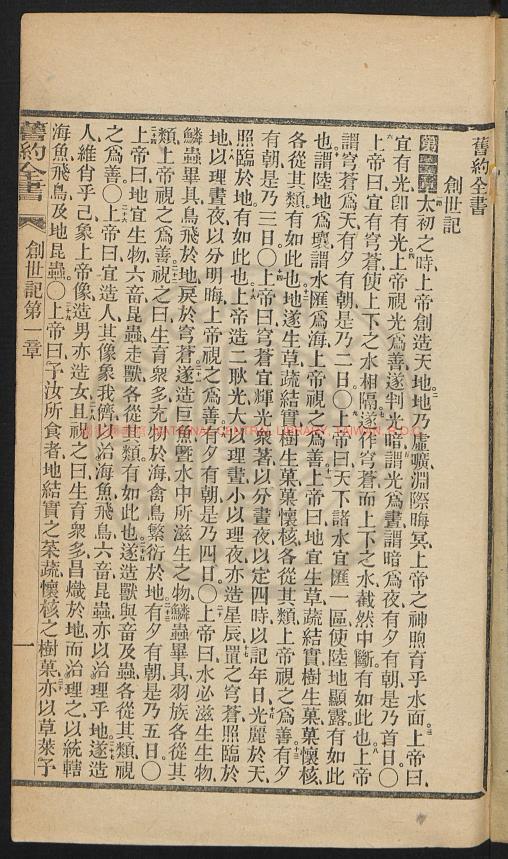 舊約全書
創世記
第一章太初之時、上帝創造天地、地乃虛曠、淵際晦冥、上帝之神煦育乎水面、上帝曰、
宜有光、卽有光、上帝視光爲善、遂判光暗、謂光爲晝、謂暗爲夜、有夕有朝、是乃首日〇
上帝曰、宜有穹蒼、使上下之水相隔、遂作穹蒼、而上下之水、截然中斷、有如此也、上帝
謂穹蒼爲天、有夕有朝、是乃二日〇上帝曰、天下諸水宜匯一區、使陸地顯露、有如此
也、謂陸地爲壤、謂水匯爲海、上帝視之爲善、上帝曰、地宜生草、蔬結實、樹生菓、菓懷核、
各從其類、有如此也、地遂生草、蔬結實、樹生菓、菓懷核、各從其類、上帝視之爲善、有夕
有朝、是乃三日〇上帝曰、穹蒼宜輝光衆著、以分晝夜、以定四時、以記年日、光麗於天、
照臨於地、有如此也、上帝造二耿光、大以理晝、小以理夜、亦造星辰、置之穹蒼、照臨於
地、以理晝夜、以分明晦、上帝視之爲善、有夕有朝、是乃四日〇上帝曰、水必滋生生物、
鱗蟲畢具、鳥飛於地、戾於穹蒼、遂造巨魚、曁水中所滋生之物、鱗蟲畢具、羽族各從其
類、上帝視之爲善、祝之曰、生育衆多、充牣於海、禽鳥繁衍於地、有夕有朝、是乃五日〇
上帝曰、地宜生物、六畜昆蟲走獸、各從其類、有如此也、遂造獸與畜及蟲、各從其類、視
之爲善〇上帝曰、宜造人、其像象我儕、以治海魚飛鳥六畜昆蟲、亦以治理乎地、遂造
人維肖乎己、象上帝像、造男亦造女、且祝之曰、生育衆多、昌熾於地、而治理之、以統轄
海魚飛鳥、及地昆蟲〇上帝曰、予汝所食者、地結實之菜蔬、懷核之樹菓、亦以草萊予
舊約全書 創世記第一章 一
NATIONAL CENTRAL LIBRARY, TAIWAN, R.O.C.